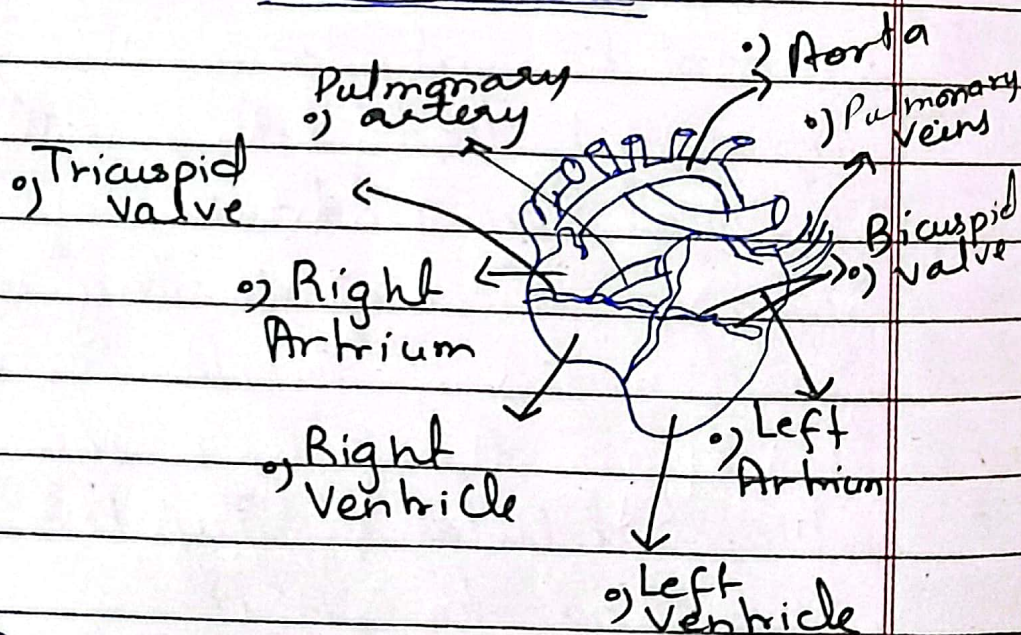 •) Aorta
Pulmonary
•) artery
•) Pulmonary
veins
•) Tricuspid
Valve
Bicuspid
•) valve
•) Right
Artrium
•) Left
Artrium
•) Right
Ventricle
•) Left
Ventricle